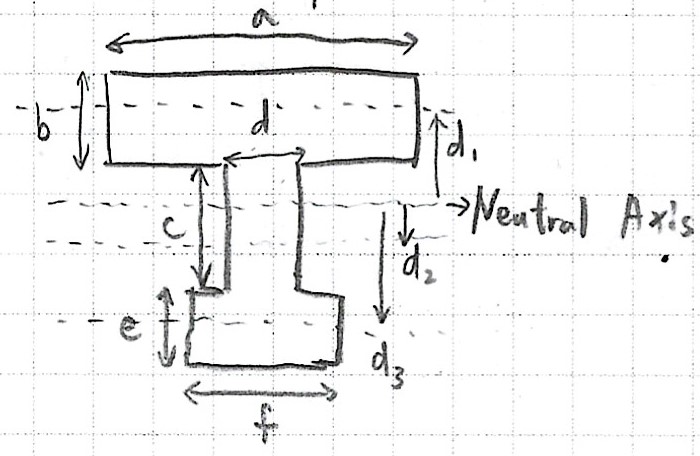 a
b
d
d₁
Neutral Axis
c
d₂
e
d₃
f